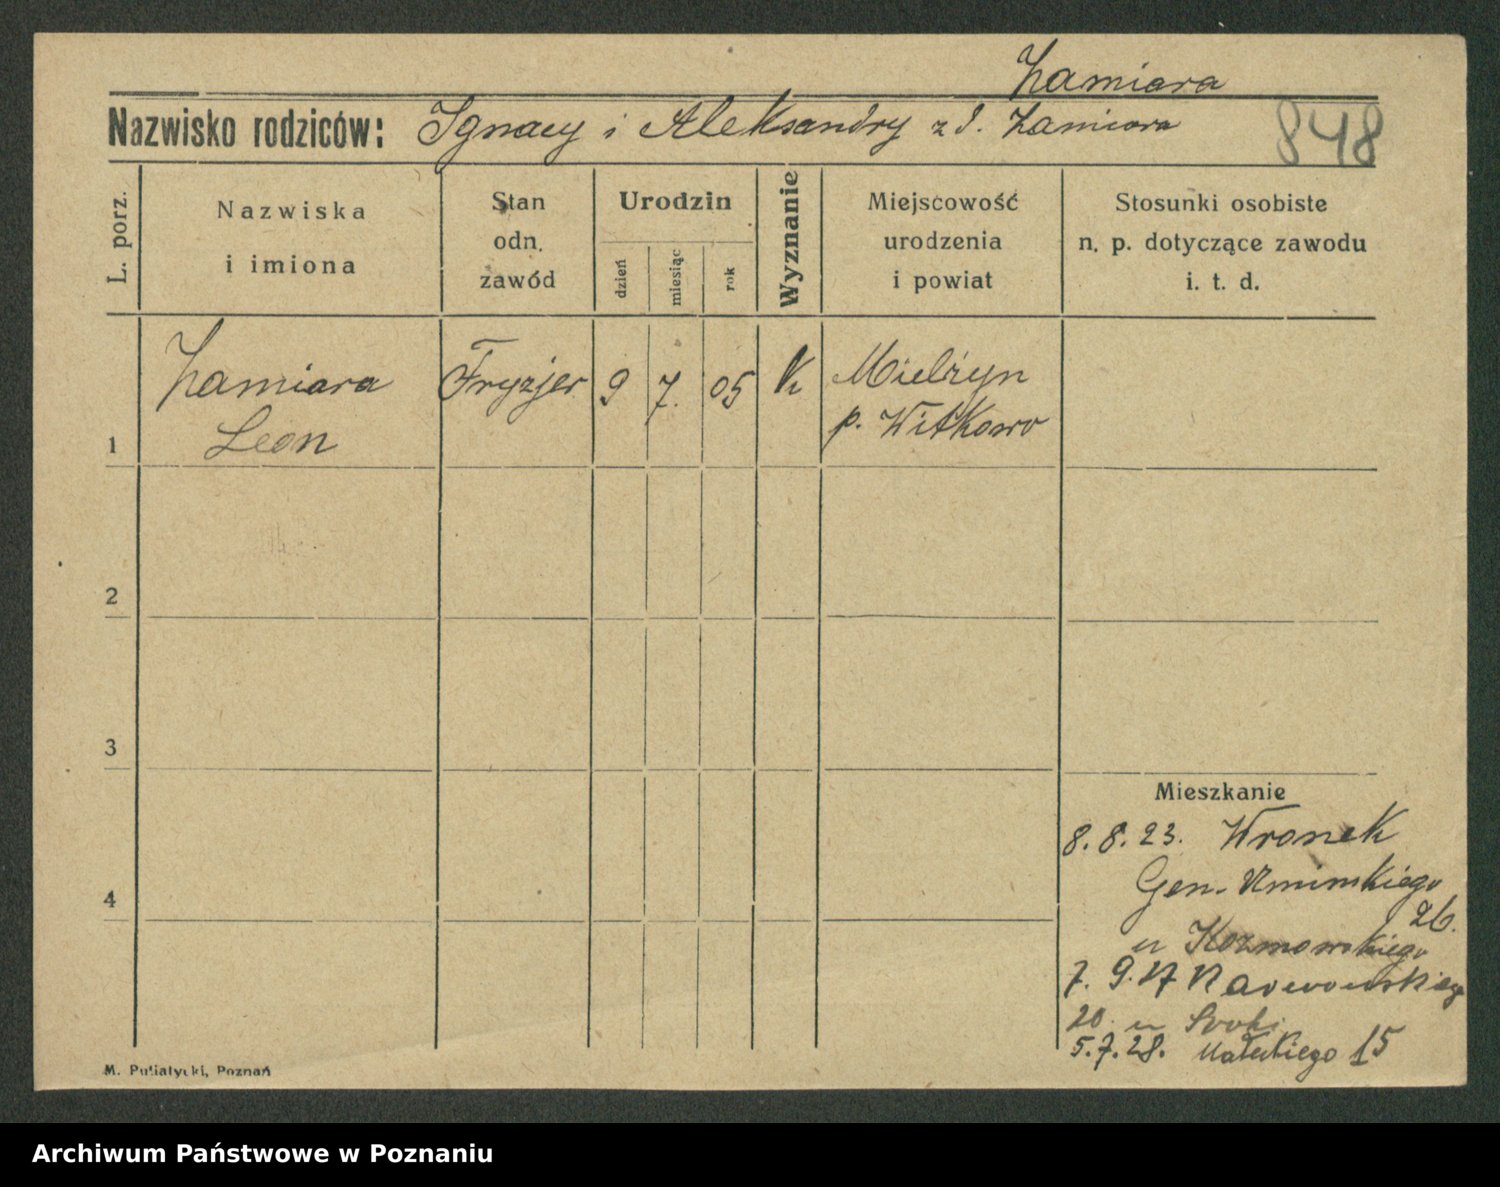 Żamiara
Nazwisko rodziców: Ignacy i Aleksandry z d. Żamiara
848
L. porz.
Nazwiska
i imiona
Stan
odn.
zawód
Urodzin
dzień
miesiąc
rok
Wyznanie
Miejscowość
urodzenia
i powiat
Stosunki osobiste
n. p. dotyczące zawodu
i. t. d.
1
Żamiara
Leon
Fryzjer
9
7.
05
K
Mielżyn
p. Witkowo
2
3
4
Mieszkanie
8.8.23. Wronek
Gen. Umińskiego
26.
u
7. 9.
20. u
5.7.28. Małeckiego 15
M. Putiatycki, Poznań
Archiwum Państwowe w Poznaniu